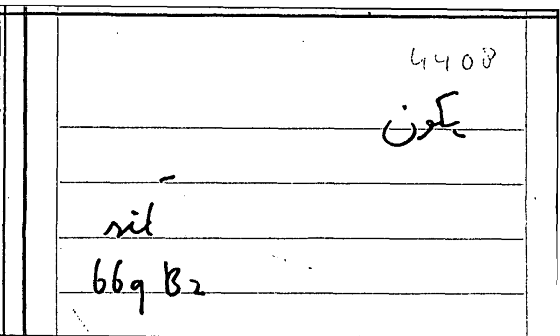 4408
یکون
-
nil
669 B2